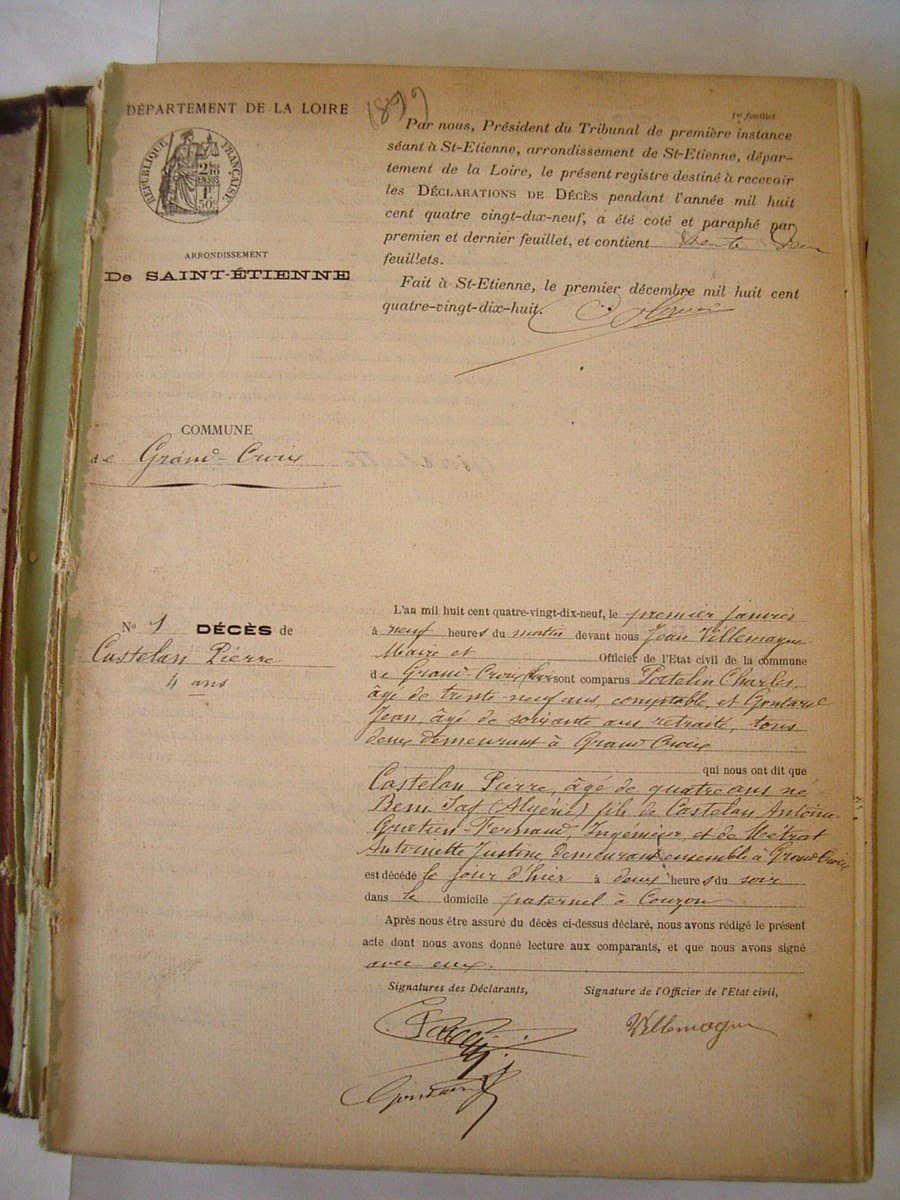 DÉPARTEMENT DE LA LOIRE
1899
1er feuillet
RÉPUBLIQUE FRANÇAISE
2/10 EN SUS
1F 50c
ARRONDISSEMENT
De SAINT-ÉTIENNE
Par nous, Président du Tribunal de première instance
séant à St-Etienne, arrondissement de St-Etienne, dépar-
tement de la Loire, le présent registre destiné à recevoir
les DÉCLARATIONS DE DÉCÈS pendant l'année mil huit
cent quatre vingt-dix-neuf, a été coté et paraphé par
premier et dernier feuillet, et contient trente
feuillets.
Fait à St-Etienne, le premier décembre mil huit cent
quatre-vingt-dix-huit.
COMMUNE
de Grand-Croix
No 1 DÉCÈS de
Castelan Pierre
4 ans
L'an mil huit cent quatre-vingt-dix-neuf, le premier janvier
à neuf heures du matin devant nous Jean Villemagne
Maire et Officier de l'Etat civil de la commune
de Grand-Croix sont comparus Charles,
âgé de trente-neuf ans, comptable, et
Jean, âgé de soixante ans retraité, tous
deux demeurant à Grand-Croix
qui nous ont dit que
Castelan Pierre, âgé de quatre ans né à
Beni Saf (Algérie) fils de Castelan Antoine
Gratien-Fernand, Ingénieur, et de Métrat
Antoinette Justine demeurant ensemble à Grand-Croix
est décédé le jour d'hier à deux heures du soir
dans le domicile paternel à Couzon
Après nous être assuré du décès ci-dessus déclaré, nous avons rédigé le présent
acte dont nous avons donné lecture aux comparants, et que nous avons signé
avec eux.
Signatures des Déclarants, Signature de l'Officier de l'Etat civil,
Villemagne